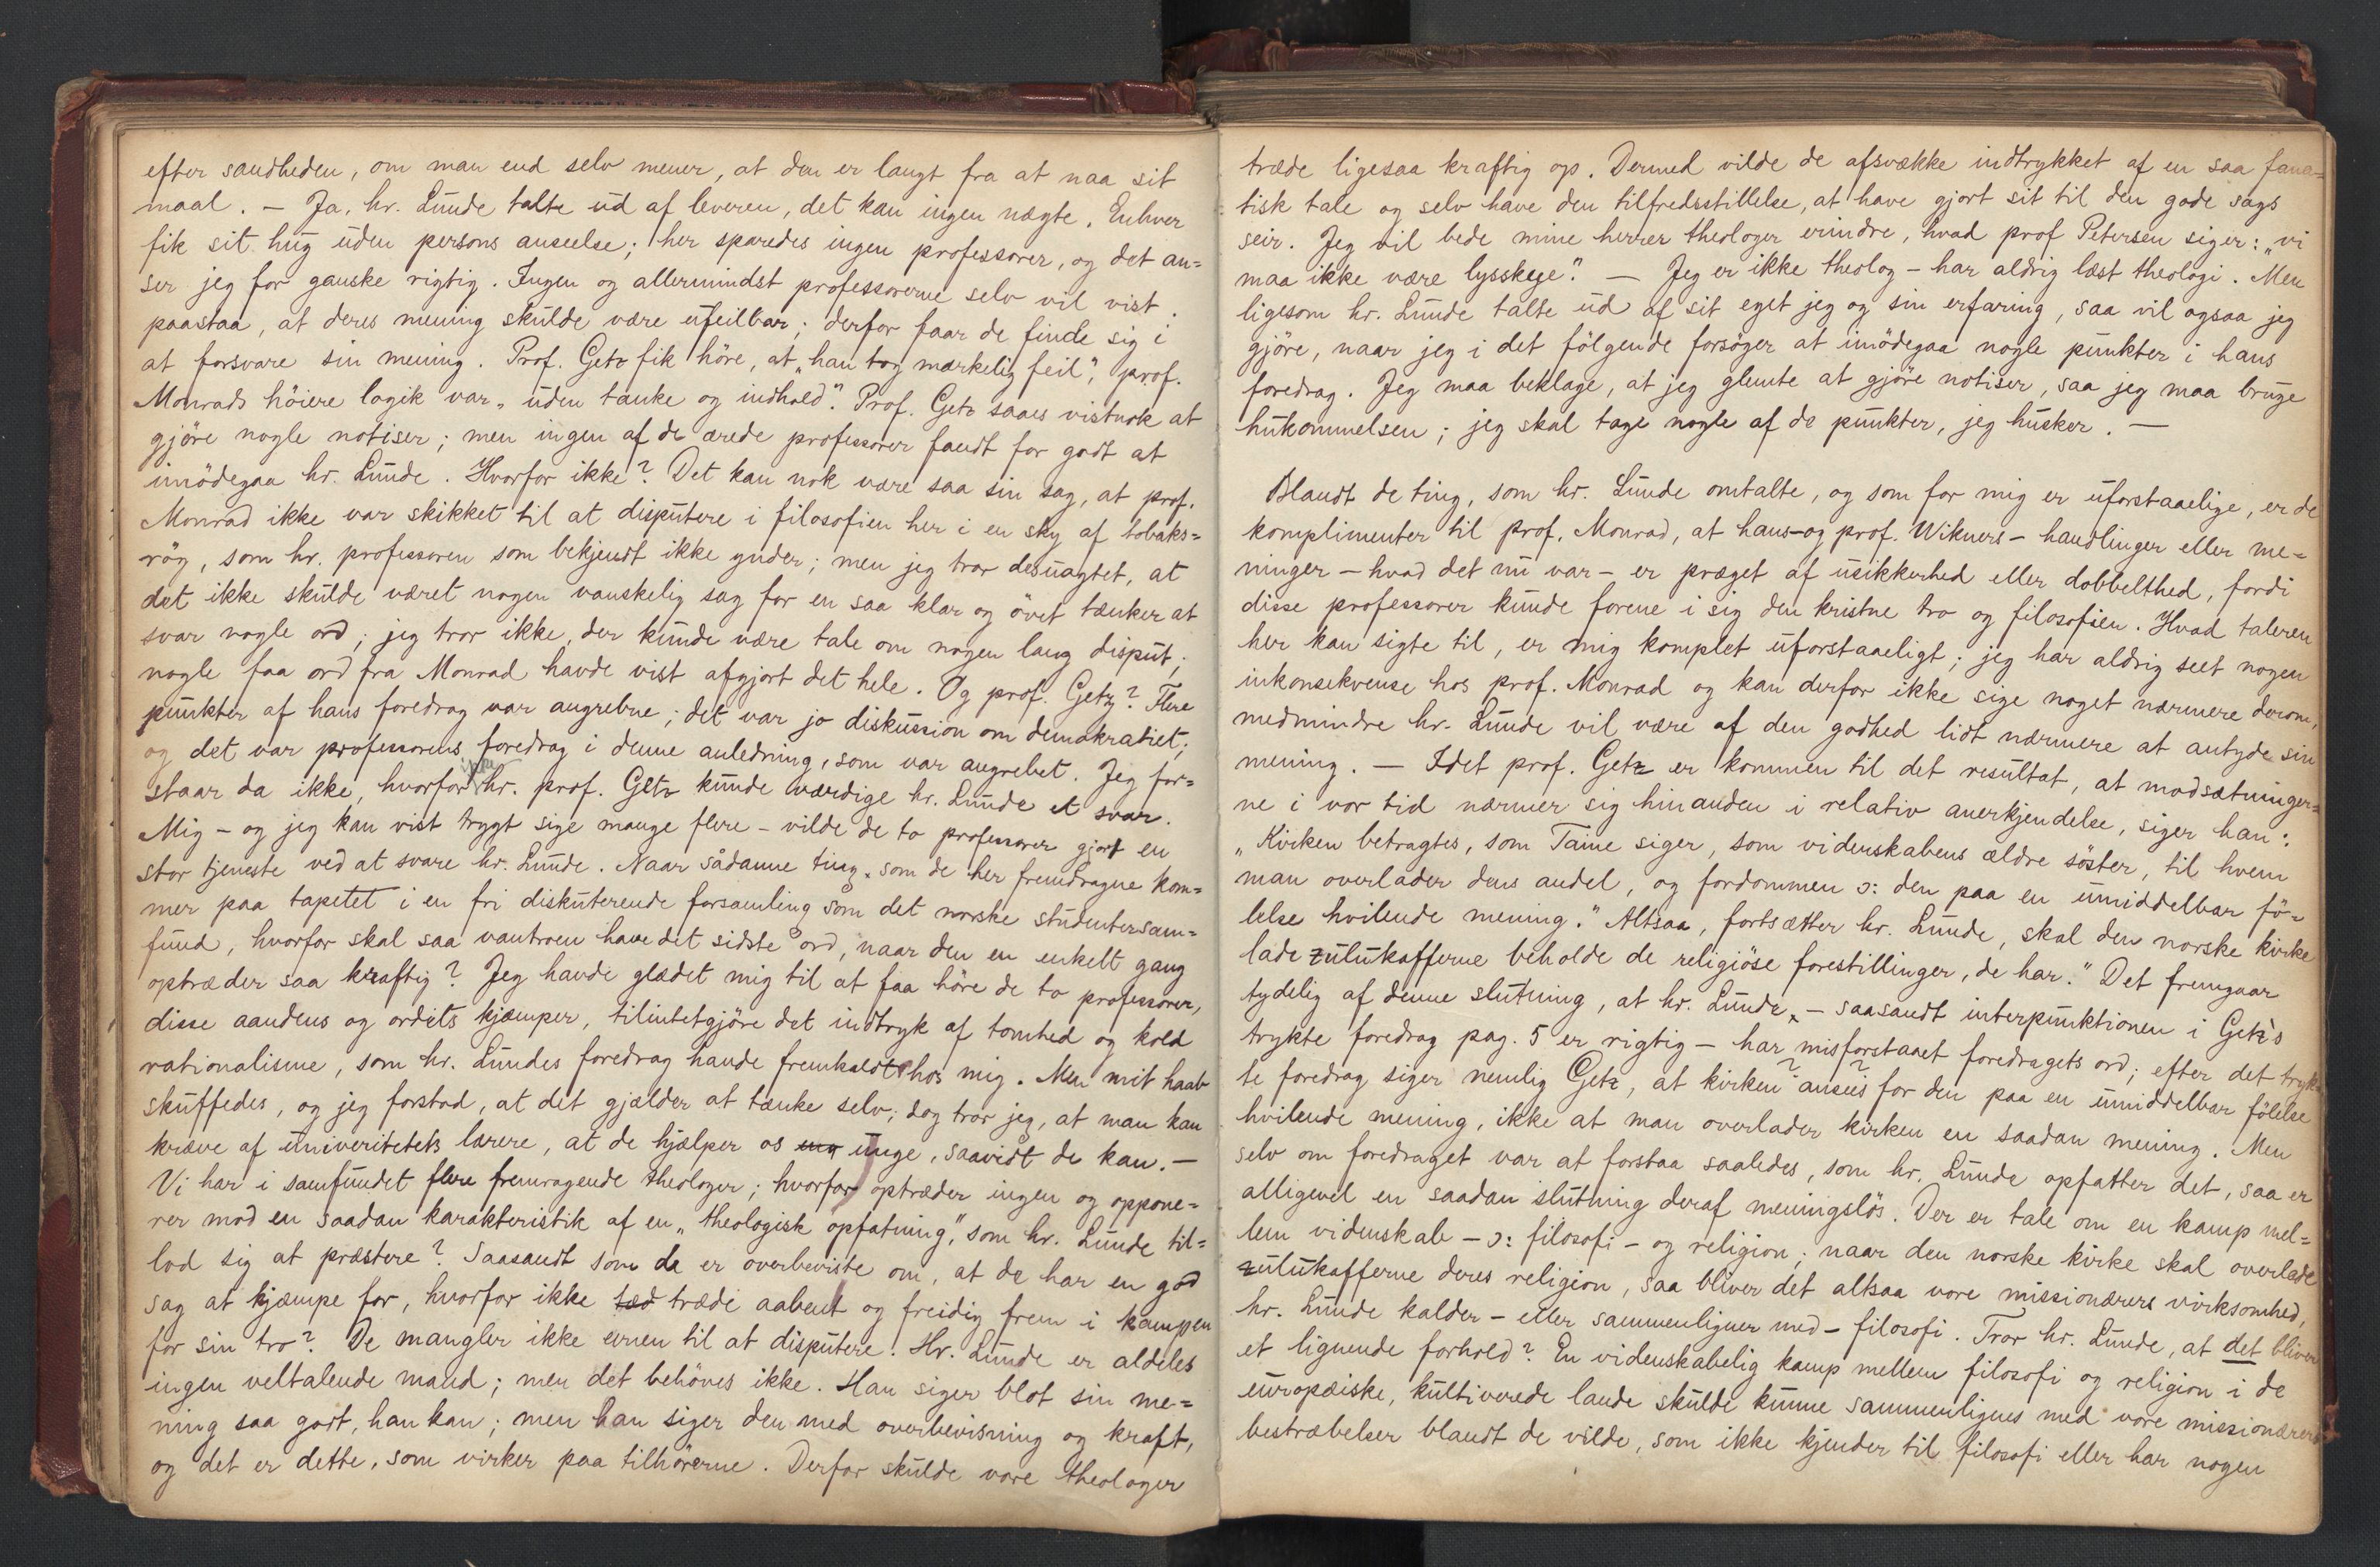 efter sandheden, om man end selv mener, at den er langt fra at naa sit
maal. — Ja, hr. Lunde talte ud af leveren, det kan ingen nægte. Enhver
fik sit hug uden persons anseelse; her sparedes ingen professorer, og det an=
ser jeg for ganske rigtig. Ingen og allermindst professorerne selv vil vist
paastaa, at deres mening skulde være ufeilbar; derfor faar de finde sig i
at forsvare sin mening. Prof. Getz fik höre, at „han tog mærkelig feil", prof.
Monrads höiere logik var „uden tanke og indhold". Prof. Getz saaes vistnok at
gjöre nogle notiser; men ingen af de ærede professorer fandt for godt at
imödegaa hr. Lunde. Hvorfor ikke? Det kan nok være saa sin sag, at prof.
Monrad ikke var skikket til at disputere i filosofien her i en sky af tobaks=
røg, som hr. professoren som bekjendt ikke ynder; men jeg tror desuagtet, at
det ikke skulde været nogen vanskelig sag for en saa klar og övet tænker at
svar nogle ord; jeg tror ikke, der kunde være tale om nogen lang disput;
nogle faa ord fra Monrad havde vist afgjort det hele. Og prof. Getz? Flere
punkter af hans foredrag var angrebne; det var jo diskussion om demokratiet;
og det var professorens foredrag i denne anledning, som var angrebet. Jeg for=
staar da ikke, hvorfor ikke hr. prof. Getz kunde værdige hr. Lunde et svar.
Mig – og jeg kan vist trygt sige mange flere – vilde de to professorer gjort en
stor tjeneste ved at svare hr. Lunde. Naar sådanne ting, som de her fremdragne kom=
mer paa tapetet i en fri diskuterende forsamling som det norske studentersam=
fund, hvorfor skal saa vantroen have det sidste ord, naar den en enkelt gang
optræder saa kraftig? Jeg havde glædet mig til at faa höre de to professorer,
disse aandens og ordets kjæmper, tilintetgjöre det indtryk af tomhed og kold
rationalisme, som hr. Lundes foredrag havde fremkaldt hos mig. Men mit haab
skuffedes, og jeg forstod, at det gjælder at tænke selv; dog tror jeg, at man kan
kræve af univeritetets lærere, at de hjælper os ung unge, saavidt de kan. —
Vi har i samfundet flere fremragende theologer; hvorfor optræder ingen og oppone=
rer mod en saadan karakteristik af en „theologisk opfatning", som hr. Lunde til=
lod sig at præstere? Saasandt som de er overbeviste om, at de har en god
sag at kjæmpe for, hvorfor ikke tæd træde aabent og freidig frem i kampen
for sin tro? De mangler ikke evnen til at disputere. Hr. Lunde er aldeles
ingen veltalende mand; men det behöves ikke. Han siger blot sin me=
ning saa godt, han kan; men han siger den med overbevisning og kraft,
og det er dette, som virker paa tilhörerne. Derfor skulde vore theologer
træde ligesaa kraftig op. Dermed vilde de afsvække indtrykket af en saa fana=
tisk tale og selv have den tilfredsstillelse, at have gjort sit til den gode sags
seir. Jeg vil bede mine herrer theologer erindre, hvad prof Petersen siger: „vi
maa ikke være lysskye". — Jeg er ikke theolog – har aldrig læst theologi. Men
ligesom hr. Lunde talte ud af sit eget jeg og sin erfaring, saa vil ogsaa jeg
gjöre, naar jeg i det fölgende forsöger at imödegaa nogle punkter i hans
foredrag. Jeg maa beklage, at jeg glemte at gjöre notiser, saa jeg maa bruge
hukommelsen; jeg skal tage nogle af de punkter, jeg husker. —
Blandt de ting, som hr. Lunde omtalte, og som for mig er uforstaaelige, er de
komplimenter til prof. Monrad, at hans – og prof. Wikners – handlinger eller me=
ninger – hvad det nu var – er præget af usikkerhed eller dobbelthed, fordi
disse professorer kunde forene i sig den kristne tro og filosofien. Hvad taleren
her kan sigte til, er mig komplet uforstaaeligt; jeg har aldrig seet nogen
inkonsekvense hos prof. Monrad og kan derfor ikke sige noget nærmere derom,
medmindre hr. Lunde vil være af den godhed lidt nærmere at antyde sin
mening. — Idet prof. Getz er kommen til det resultat, at modsætninger=
ne i vor tid nærmer sig hinanden i relativ anerkjendelse, siger han:
„Kirken betragtes, som Taine siger, som videnskabens ældre söster, til hvem
man overlader dens andel, og fordommen ɔ: den paa en umiddelbar fö=
lelse hvilende mening." Altsaa, fortsætter hr. Lunde, skal den norske kirke
lade zulukafferne beholde de religiöse forestillinger, de har." Det fremgaar
tydelig af denne slutning, at hr. Lunde, – saasandt interpunktionen i Getz's
trykte foredrag pag. 5 er rigtig – har misforstaaet foredragets ord; efter det tryk=
te foredrag siger nemlig Getz, at kirken ? ansees ? for den paa en umiddelbar fölelse
hvilende mening, ikke at man overlader kirken en saadan mening. Men
selv om foredraget var at forstaa saaledes, som hr. Lunde opfatter det, saa er
alligevel en saadan slutning deraf meningslös. Der er tale om en kamp mel=
lem videnskab – ɔ: filosofi – og religion; naar den norske kirke skal overlade
zulukafferne deres religion, saa bliver det altsaa vore missionærers virksomhed,
hr. Lunde kalder – eller sammenligner med – filosofi. Tror hr. Lunde, at det bliver
et lignende forhold? En videnskabelig kamp mellem filosofi og religion i de
europæiske, kultiverede lande skulde kunne sammenlignes med vore missionærers
bestræbelser blandt de vilde, som ikke kjender til filosofi eller har nogen